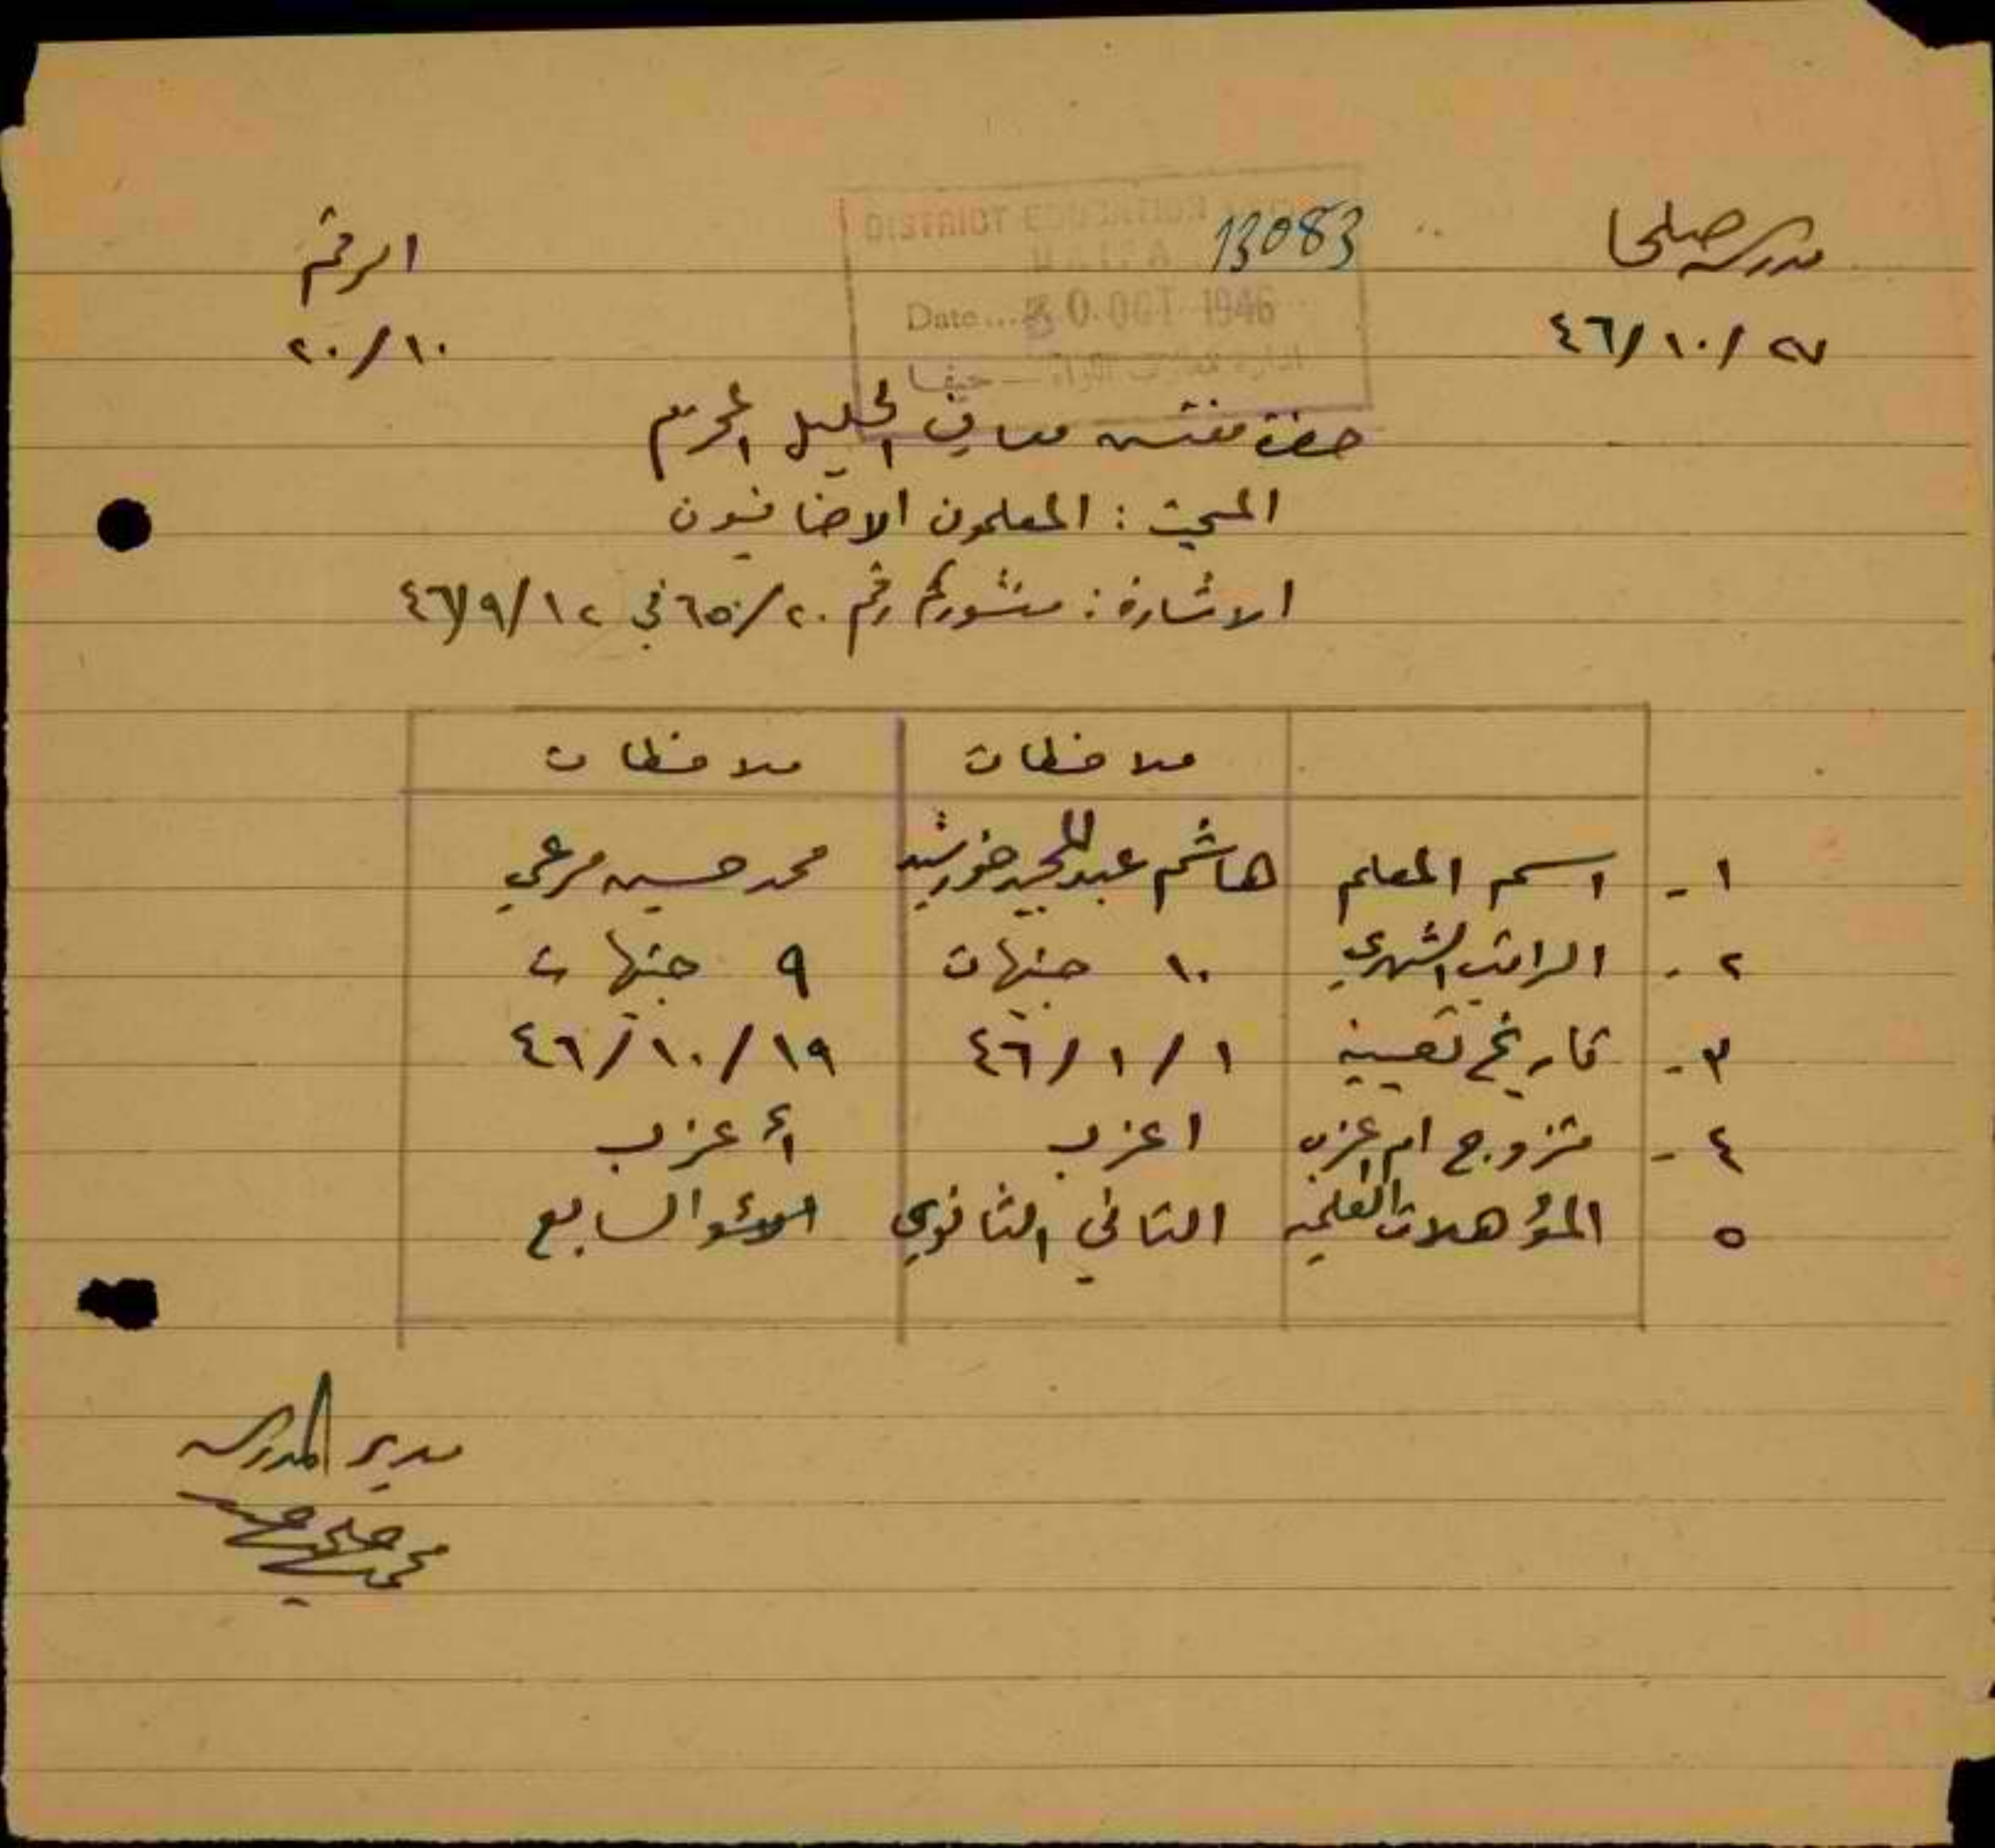 مدرسة صلحا
13083
الرقم
DISTRICT EDUCATION
HAIFA
Date... 30 OCT 1946
حيفا
٢٧/١٠/٤٦
١٠/٢٠
حضرة مفتش معارف الجليل المحترم
المبحث : المعلمون الاضافيون
الاشارة : منشوركم رقم ٦٥/٢٠ في ١٢/٩/٤٦
ملاحظات ملاحظات
١- اسم المعلم هاشم عبد المجيد خورشيد محمد حسين مرعي
٢- الراتب الشهري ١٠ جنيهات ٩ جنيهات
٣- تاريخ تعيينه ١/١/٤٦ ١٩/١٠/٤٦
٤- متزوج ام اعزب اعزب أعزب
٥ المؤهلات العلمية الثاني الثانوي السابع
مدير المدرسة